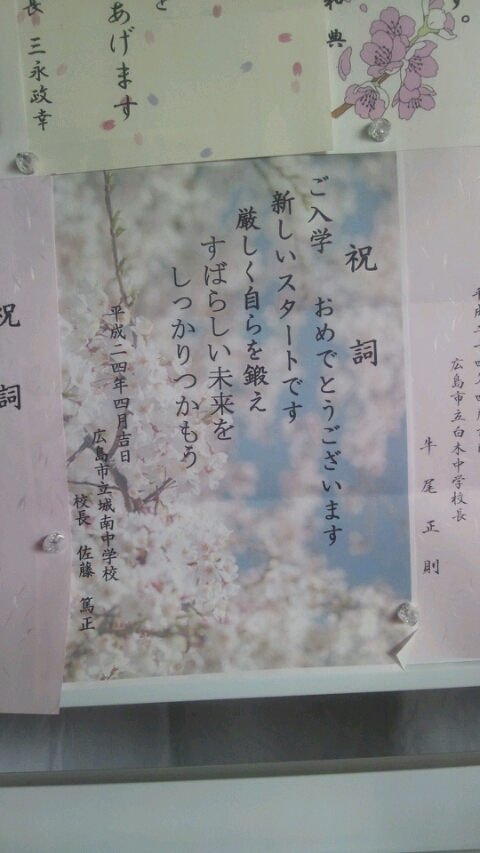 あげます
長 三永政幸
和典
す。
を
祝詞
ご入学 おめでとうございます
新しいスタートです
厳しく自らを鍛え
すばらしい未来を
しっかりつかもう
平成二四年四月吉日
広島市立城南中学校
校長 佐藤 篤正
広島市立白木中学校長
牛尾正則
祝詞